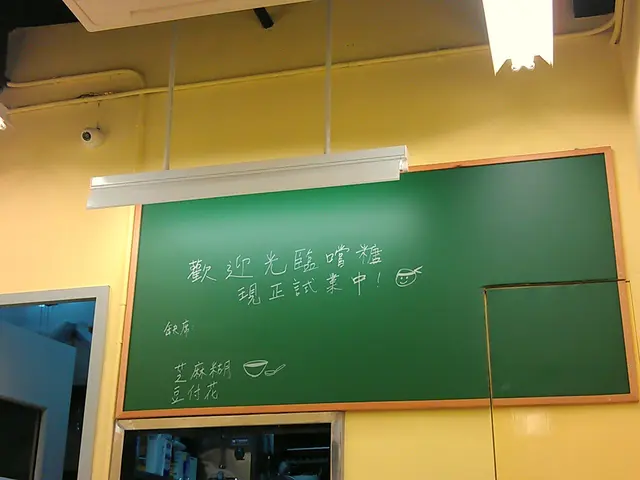 歡迎光臨嚐糖
現正試業中!
缺席:
芝麻糊
豆付花